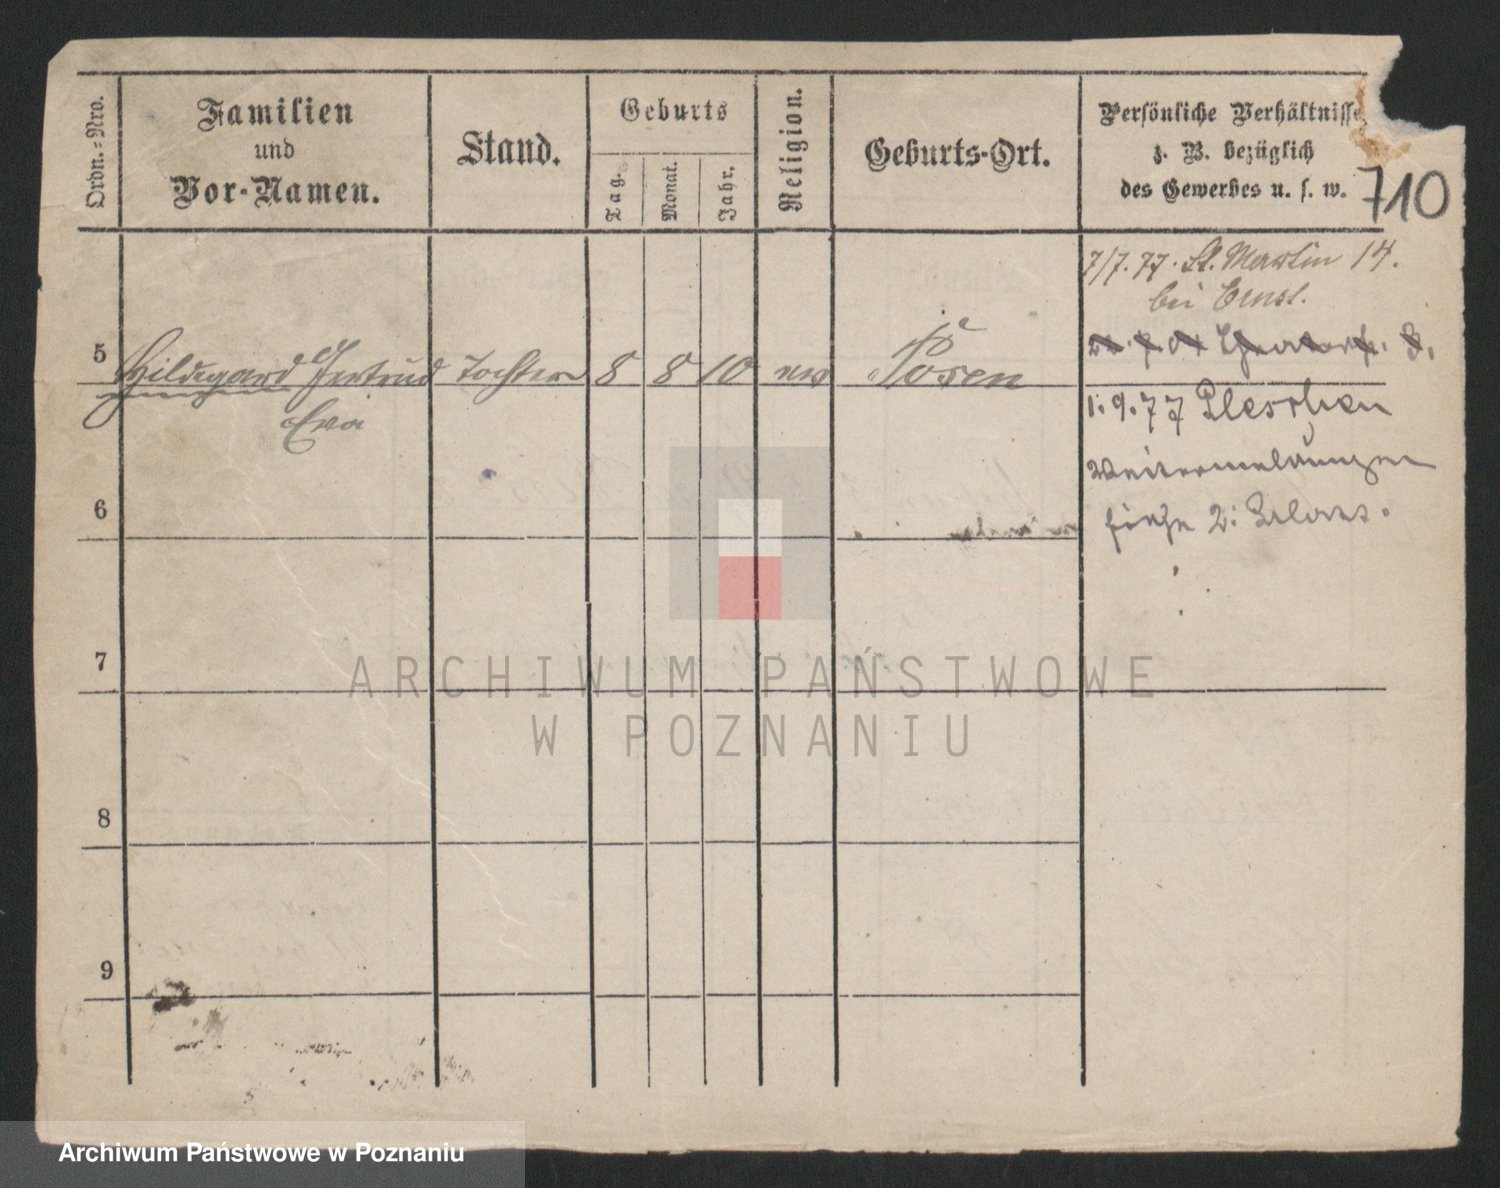 Ordn.-Nro.
Familien
und
Vor-Namen.
Stand.
Geburts
Tag.
Monat.
Jahr.
Religion.
Geburts-Ort.
Persönliche Verhältnisse
z. B. bezüglich
des Gewerbes u. s. w.
710
7/7. 77. St. Martin 14.
bei Ernst.
5
Hildegard Gertrud Tochter 8 8 10 Posen
Eva
1. 9. 77 Pleschen
Weitermeldungen
siehe 2:
6
7
8
9
ARCHIWUM PAŃSTWOWE
W POZNANIU
Archiwum Państwowe w Poznaniu